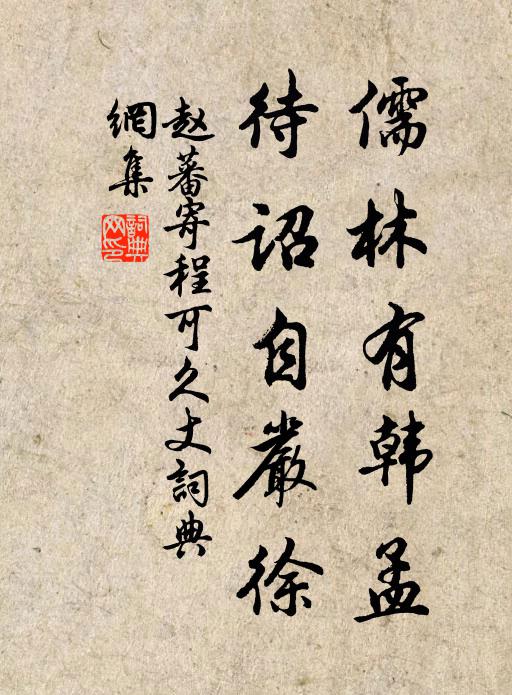 儒林有韩孟
待诏自嚴徐
赵蕃寄程可久丈詞典
網集
詞典
网印